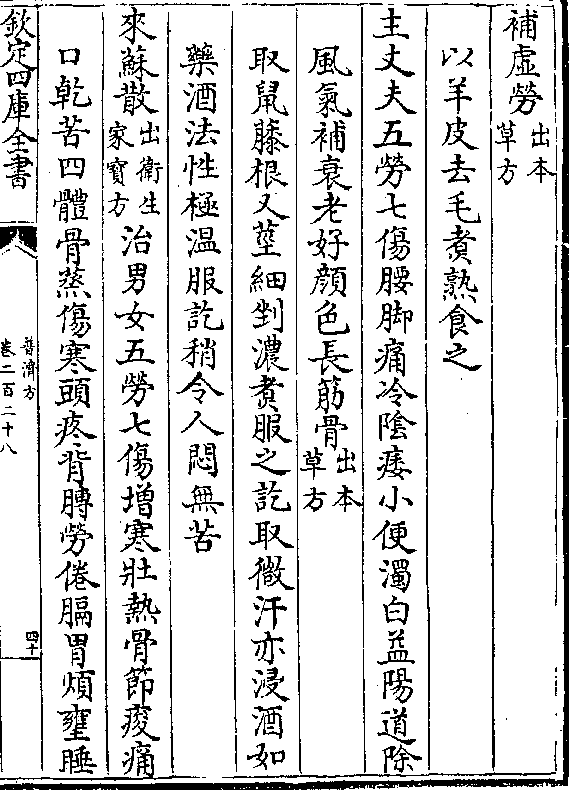 補虚勞出本草方
以羊皮去毛煮熟食之
主丈夫五勞七傷腰脚痛冷陰痿小便濁白益陽道除
風氣補衰老好顔色長筋骨出本草方
取鼠藤根又莖細剉濃煮服之訖取微汗亦浸酒如
藥酒法性極温服訖稍令人悶無苦
來蘇散出衛生家寶方治男女五勞七傷增寒壯熱骨節痠痛
口乾苦四體骨蒸傷寒頭疼背膊勞倦膈胃煩壅睡
欽定四庫全書
普濟方
卷二百二十八
四十